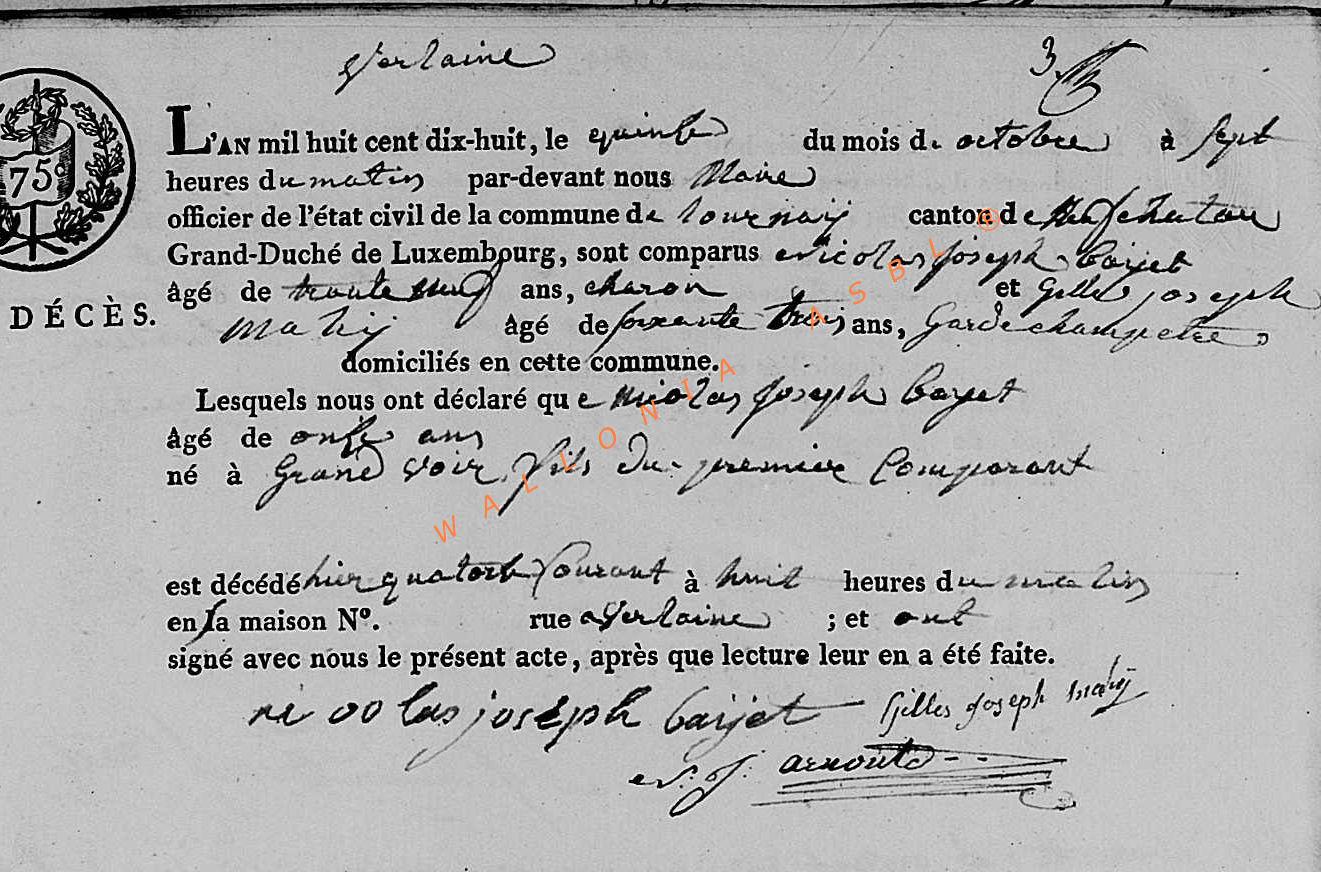 Verlaine
3
L'AN mil huit cent dix-huit, le quinze du mois d. octobre à sept
75c
heures du matin par-devant nous Maire
officier de l'état civil de la commune de tournay canton de Neufchateau
Grand-Duché de Luxembourg, sont comparus Nicolas joseph bayet
DÉCÈS.
âgé de trente neuf ans, charon et Gilles joseph
mahy âgé de soixante trois ans, Garde champetre
domiciliés en cette commune.
Lesquels nous ont déclaré que Nicolas joseph bayet
âgé de onze ans
né à Grand voir, fils du premier Comparant
est décédé hier quatorze Courant à huit heures du matin
en sa maison N°. rue a Verlaine ; et ont
signé avec nous le présent acte, après que lecture leur en a été faite.
nicolas joseph baijet Gilles joseph mahy
N. J. arnould
WALLONIA ASBL ©